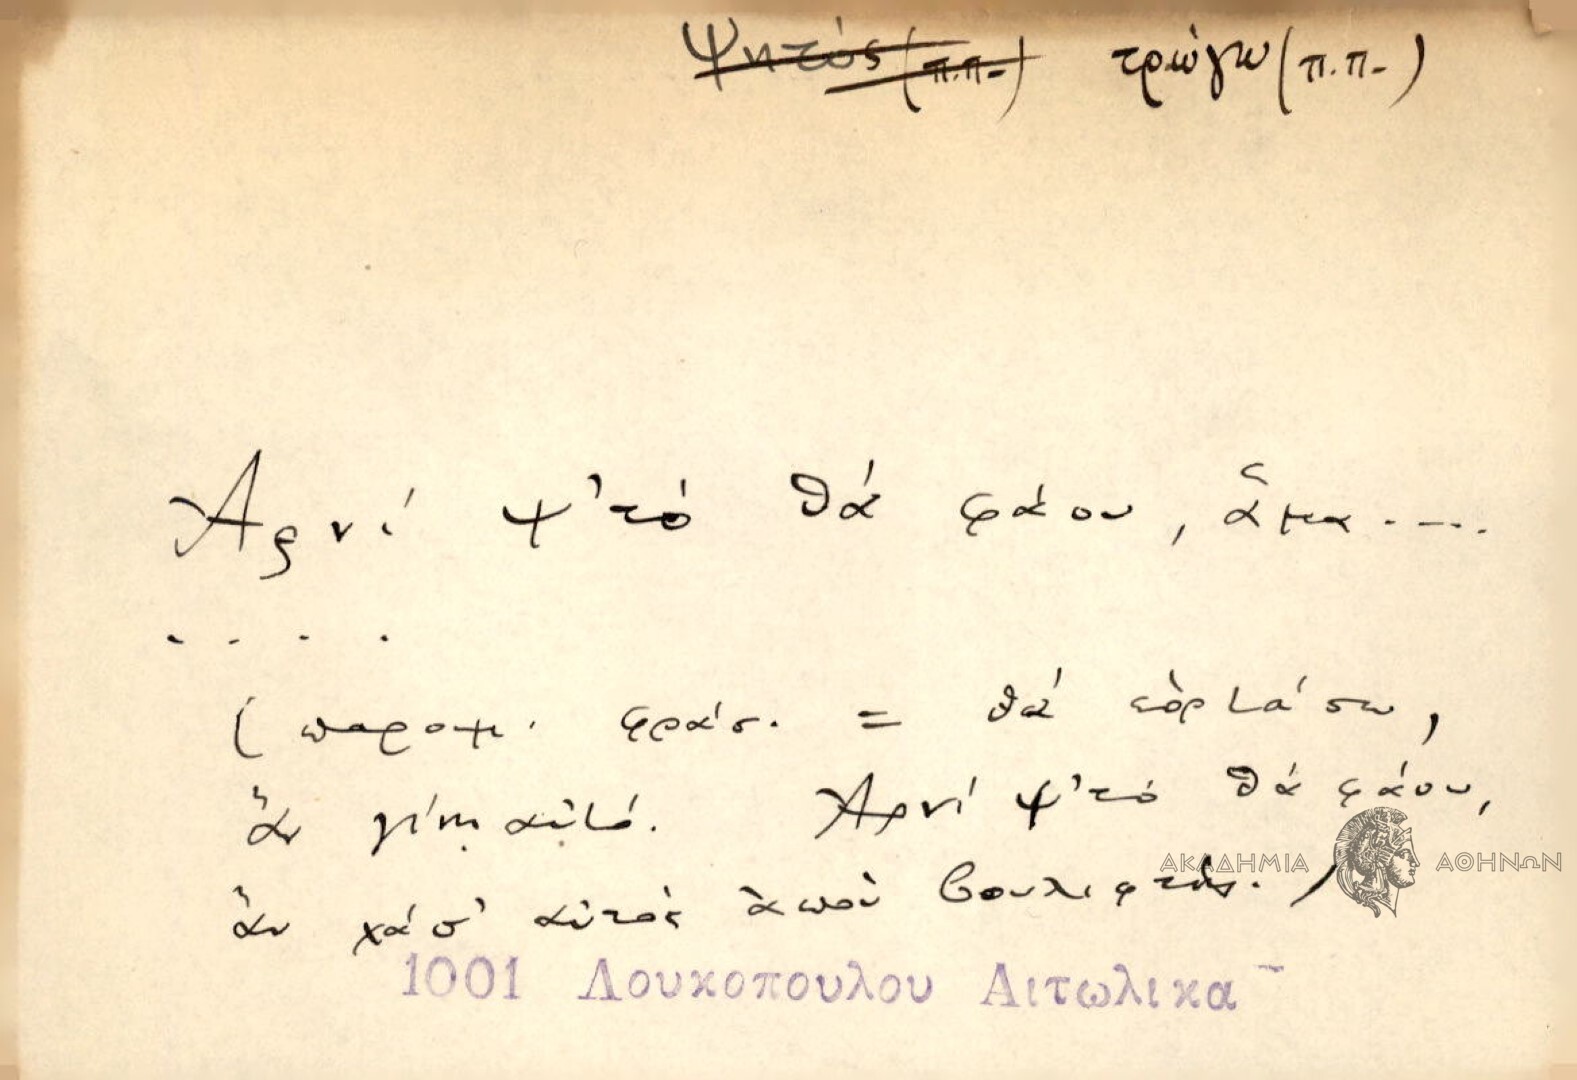 Ψητός (π.π.) τρώγω (π.π.)
Ἀρνί ψ'τό θά φάου, ἅμα.....
. . . .
(παροιμ. φράσ. = θά ἑορτάσω,
ἂν γίνῃ αὐτό. Ἀρνί ψ'τό θά φάου,
ἂν χάσ' αὐτός ἀπού βουλιφτής.)
ΑΚΑΔΗΜΙΑ ΑΘΗΝΩΝ
1001 Λουκοπουλου Αιτωλικα